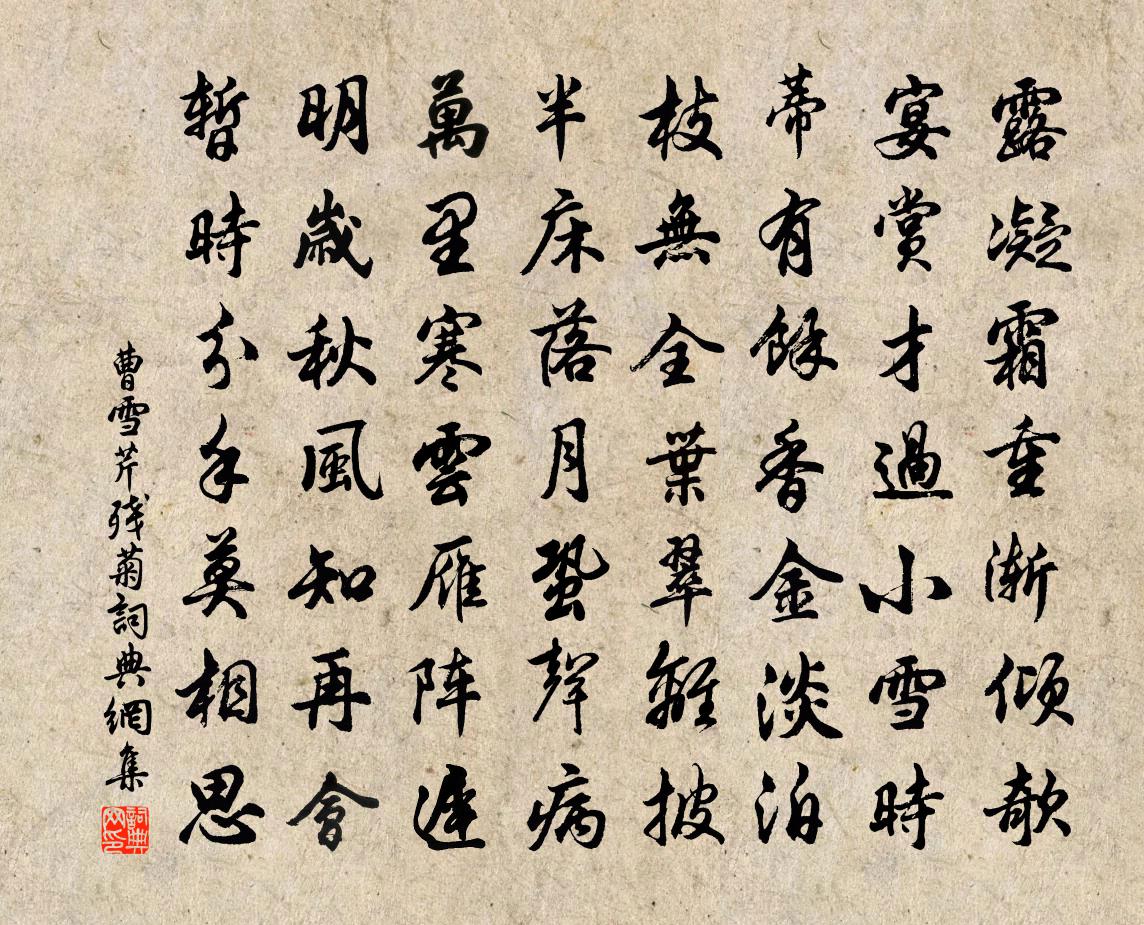 露凝霜重漸傾欹
宴賞才過小雪時
蒂有餘香金淡泊
枝無全葉翠離披
半床落月蛩聲病
萬里寒雲雁陣遲
明歲秋風知再會
暫時分手莫相思
曹雪芹残菊詞典網集
詞典网印